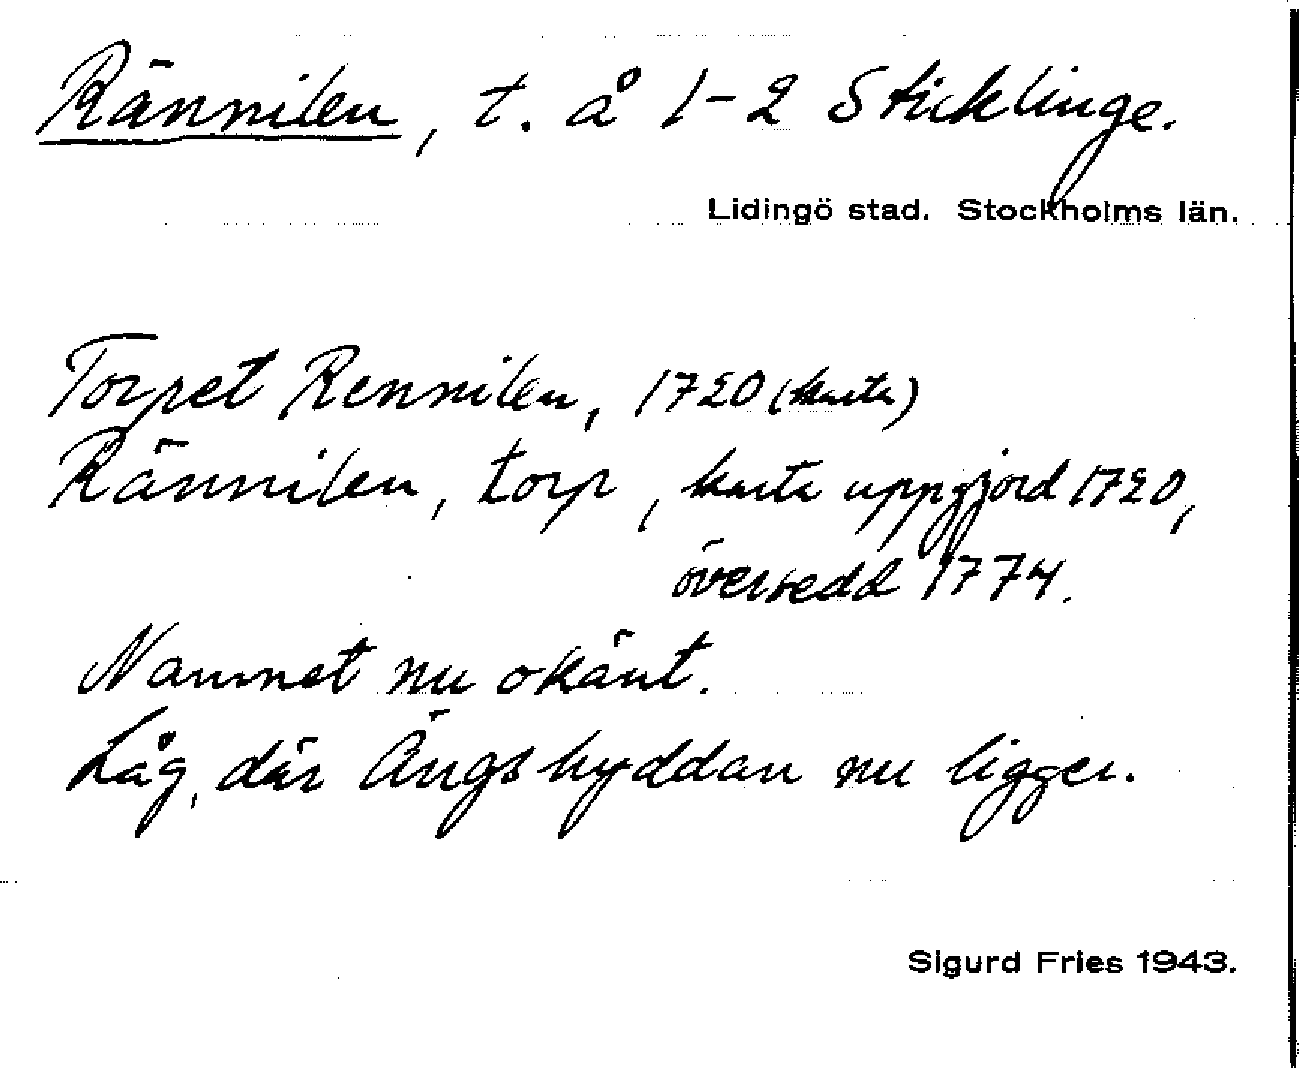 Rännilen, t. å 1-2 Sticklinge.
Lidingö stad. Stockholms län.
Torpet Rennilen, 1720 (karta)
Rännilen, torp, karta uppgjord 1720,
översedd 1774.
Namnet nu okänt.
Låg, där Ängshyddan nu ligger.
Sigurd Fries 1943.